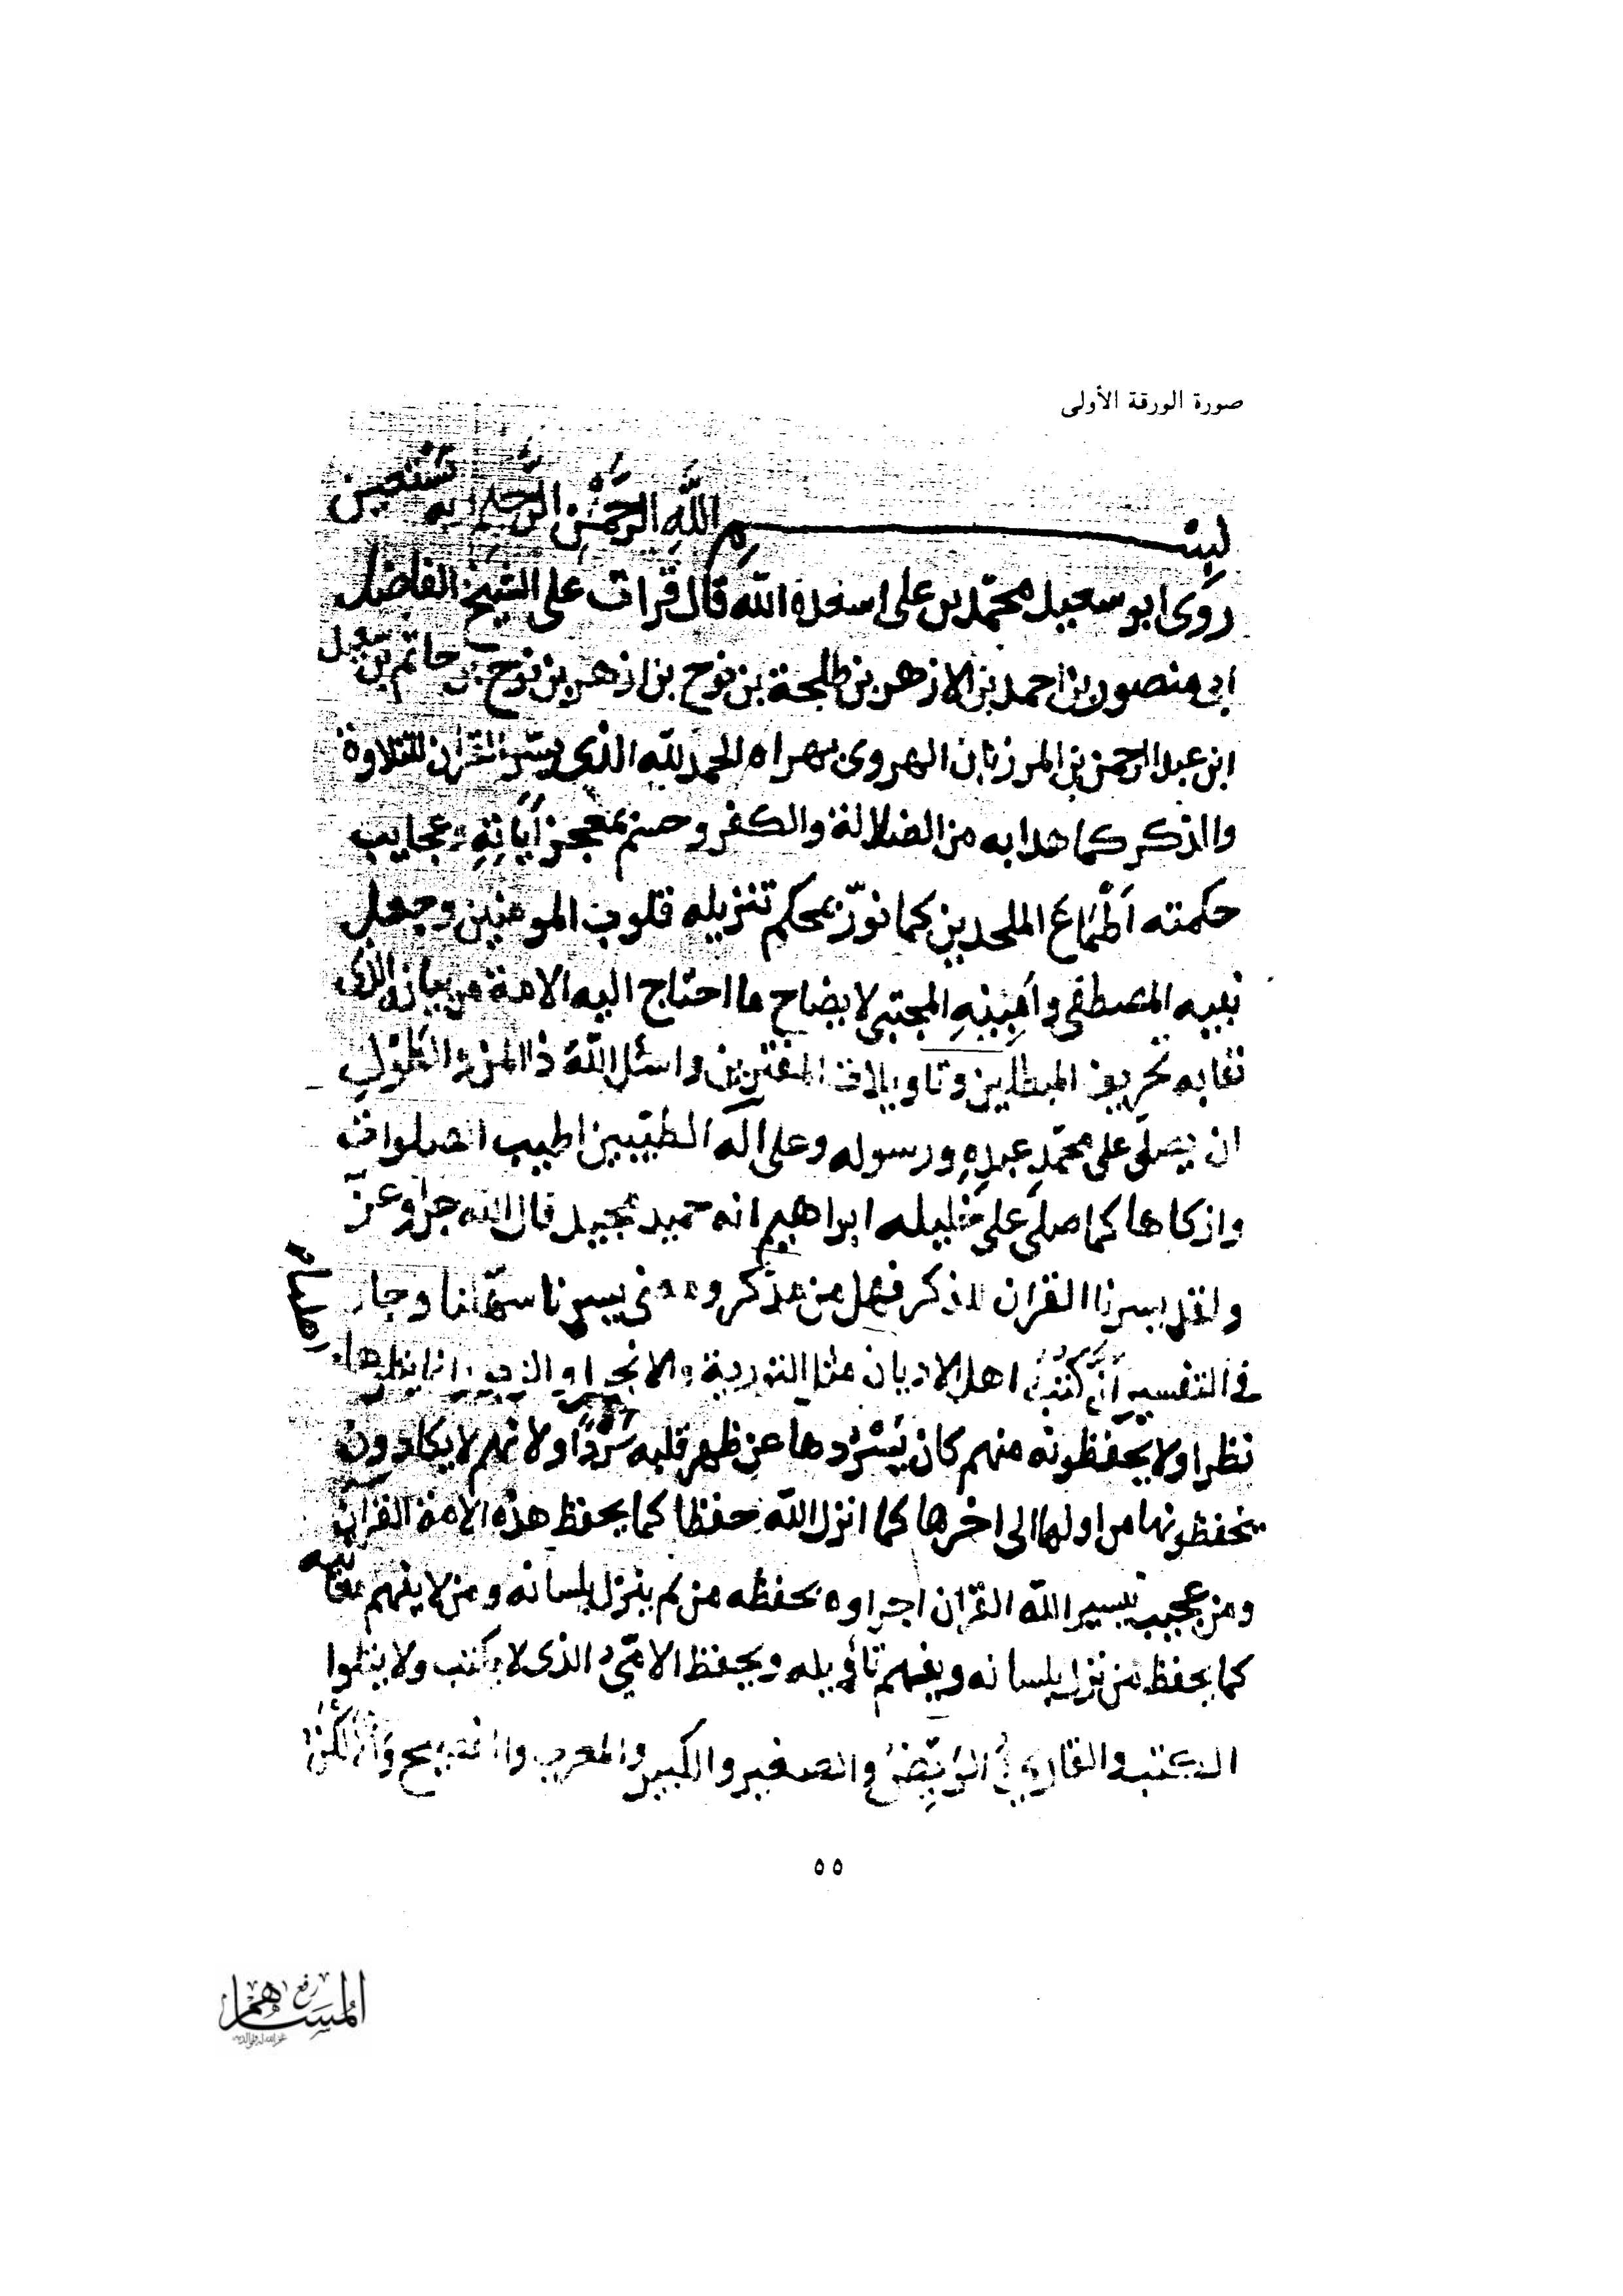 صورة الورقة الأولى
بِسْمِ اللّٰهِ الرَّحْمٰنِ الرَّحِيمِ به نستعين
روى ابو سعيد محمّد بن على اسعده اللّه قال قرات على الشيخ الفاضل
ابى منصور بن احمد بن الازهر بن طلحة بن نوح بن ازهر بن نوح بن حاتم بن سعيد
ابن عبد الرحمن بن المرزبان الهروى بهراه الحمد للّه الذى يسّر القرآن للتلاوة
والذكر كما هدا به من الضلالة والكفر وحسم بمعجز آياتِهِ وعجايب
حكمته اَطْمَاع الملحدين كما نوّر بمحكم تنزيله قلوب المومنين وجعل
نبيه المصطفى وامِينِهِ المجتبى لايضاح ما احتاج اليه الامة من بيانه الذى
نفا به تحريف المبطلين وتاويلات المفترين واسئل اللّه ذا المن والطَول
ان يصلّى على محمّدٍ عبدِهِ ورسوله وعلى آله الطيّبين اطيب الصلوات
وازكاها كما صلى على خليله ابراهيم انه حميد مجيد قال اللّه جل وعزّ
ولقد يسرنا القران للذكر فهل من مذكر ومعنى يسرنا سهّلنا وجا
فى التفسير انّ كُتُبَ اهل الاديان مثل التورية والانجيل و انما يتلوها
نظرا ولا يحفظونه منهم كان يَسْرُدها عن ظهر قلبه سَرْدًا ولانهم لا يكادون
يحفظونها من اولها الى اخرها كما انزل اللّه حفظا كما يحفظ هذه الامة القرآن
ومن عجيب تيسير اللّه القران اجراوه بحفظه من لم ينزل بلسانه ومن لا يفهم معانيه
كما يحفظ من نزل بلسانه ويفهم تأويله ويحفظ الامّى الذى لا يكتب ولا يتلوا
الكتب والقارى الرَيّضُ والصغير والكبير والمعرب والفصيح والالكن
٥٥
رفع
المساهم
غفر الله له ولوالديه